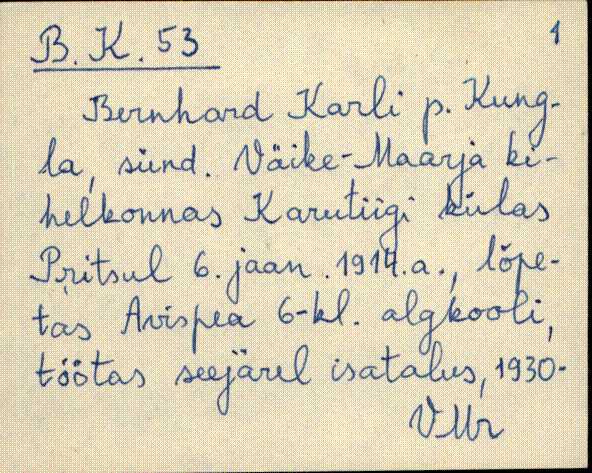 B. K. 53
1
Bernhard Karli p. Kung-
la, sünd. Väike-Maarja ki-
helkonnas Karutiigi külas
Pritsul 6. jaan. 1914. a., lõpe-
tas Avispea 6-kl. algkooli,
töötas seejärel isatalus, 1930-
VMr